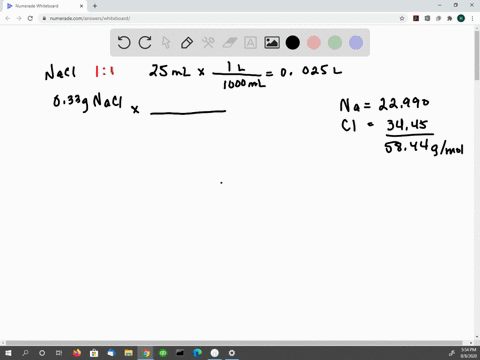 Numerade Whiteboard
numerade.com/answers/whiteboard/
NaCl 1:1 25 mL × 1 L / 1000 mL = 0.025 L
0.33g NaCl ×
Na = 22.990
Cl = 34.45
58.44 g/mol
5:54 PM
9/8/2020